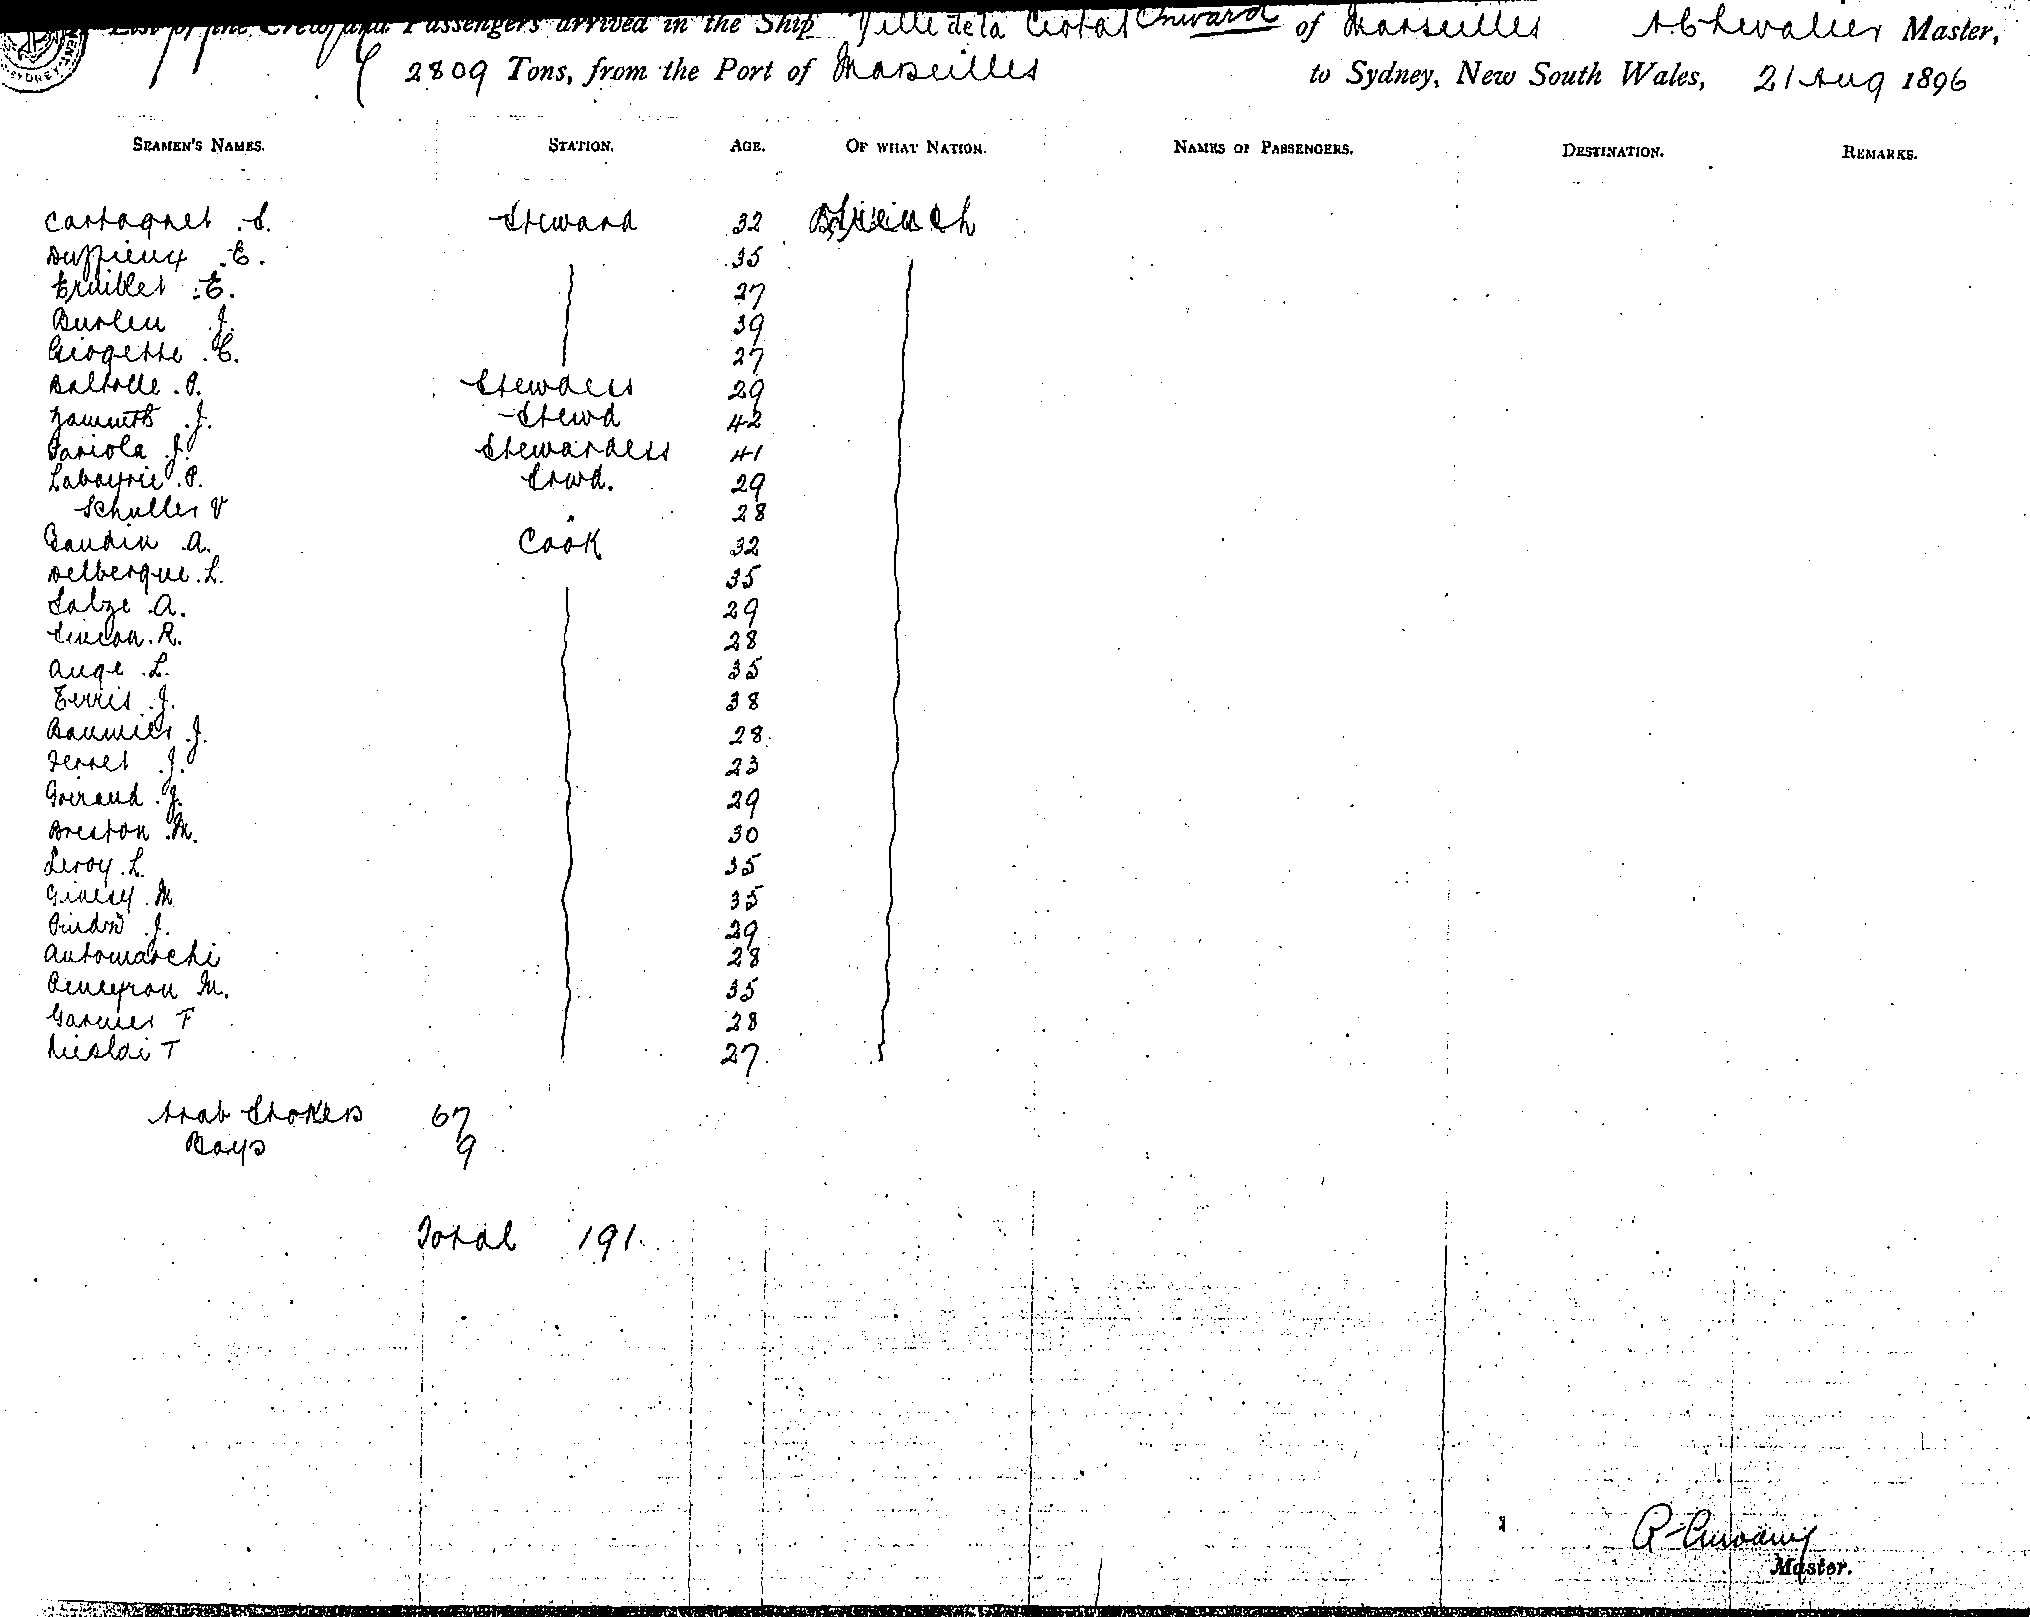 List of the Crew and Passengers arrived in the Ship Ville de la Ciotat Onward of Marseilles A. Chevalier Master,
2809 Tons, from the Port of Marseilles to Sydney, New South Wales, 21 Aug 1896
SYDNEY
SEAMEN'S NAMES. STATION. AGE. OF WHAT NATION. NAMES OF PASSENGERS. DESTINATION. REMARKS.
Castagnet .S. Steward 32 French
Duffieux .E. 35
E. 27
Burleu J. 39
Giogette .C. 27
Baltolle .P. Stewdess 29
J. Stewd 42
Pariola J. Stewardess 41
Labayrie .P. Stwd. 29
Schuller V " 28
Gaudin A. Cook 32
Delberque. L. 35
Salze .A. 29
Simeon. R. 28
Auge .L. 35
Terris .J. 38
Baumier .J. 28
Ferret .J. 23
Goiraud .J. 29
Breston .M. 30
Leroy .L. 35
M 35
J. 29
Antomarchi 28
Peneyrou M. 35
Garnier F 28
T 27
Arab Stokers 67
Boys 9
Total 191.
Master.